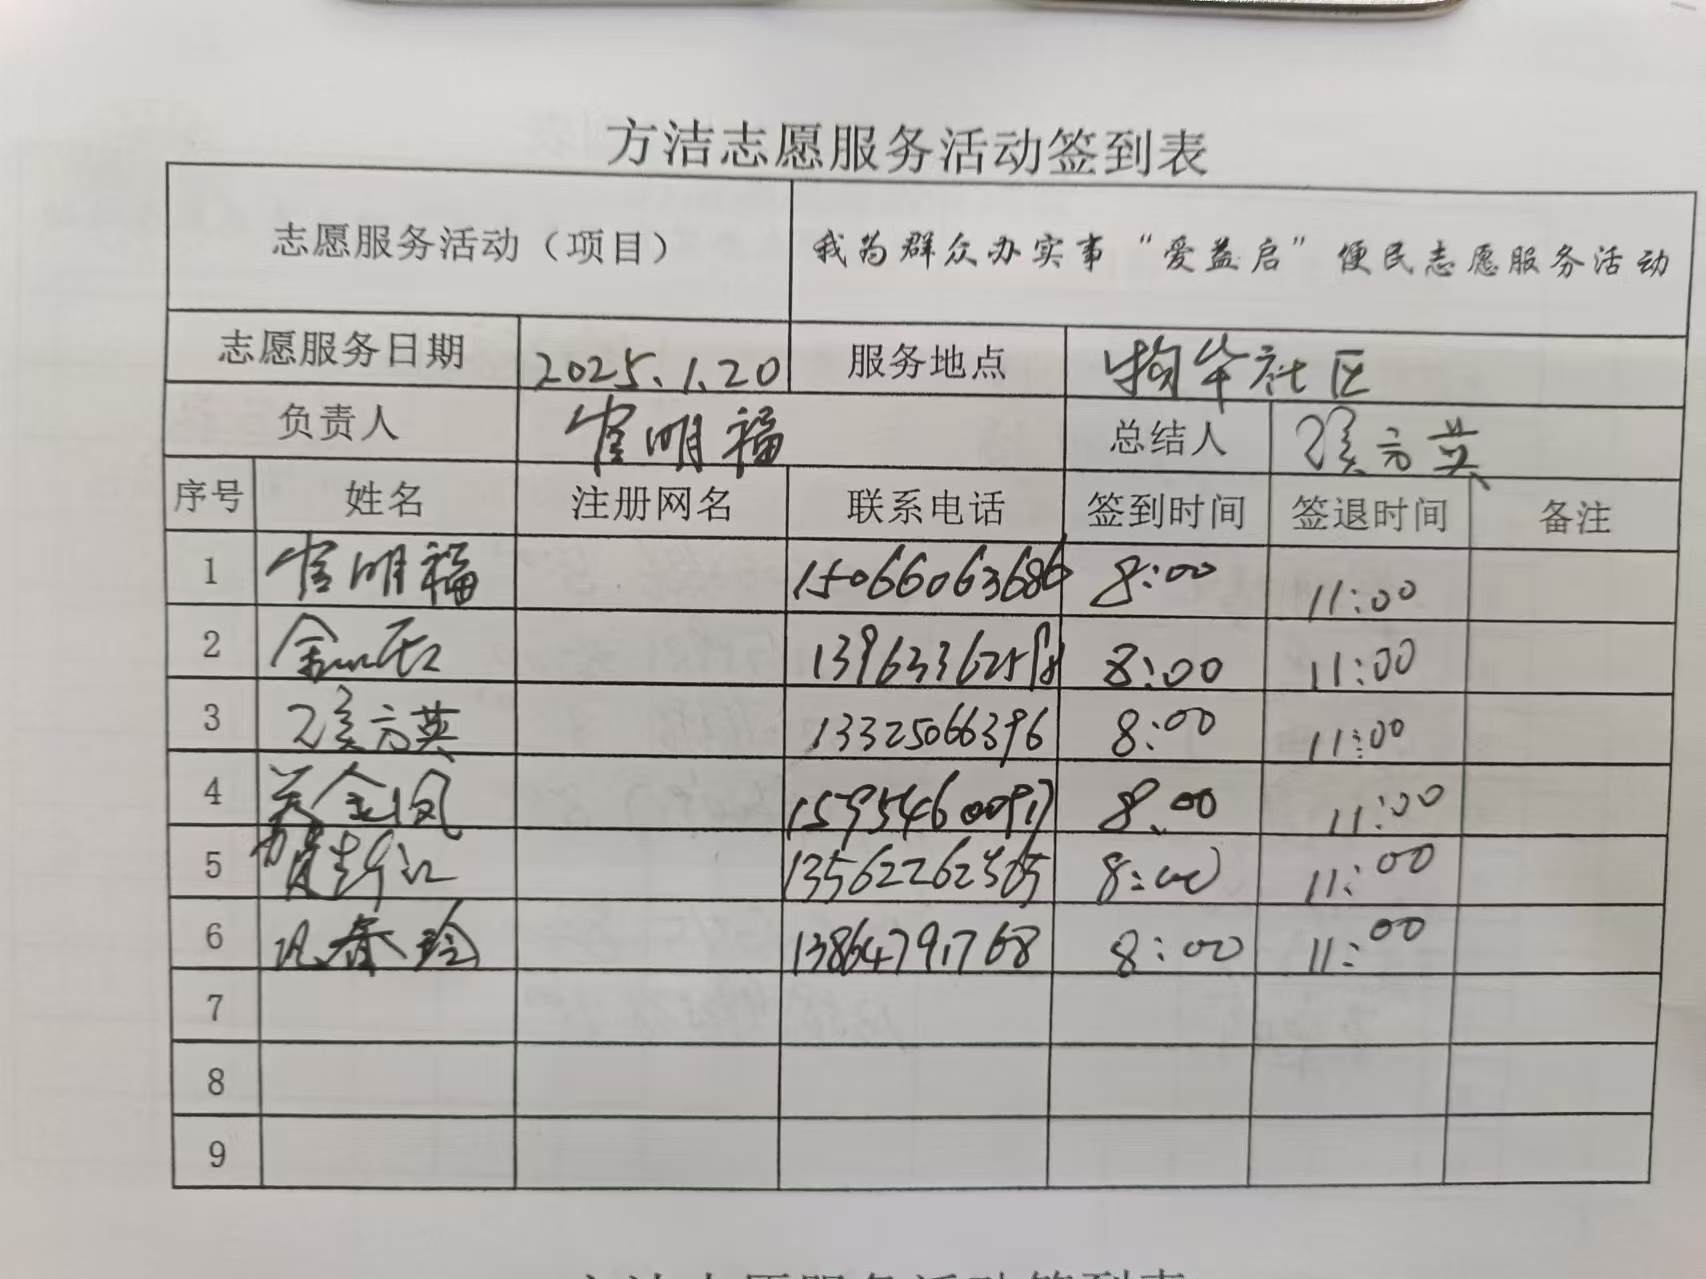 方洁志愿服务活动签到表
志愿服务活动（项目） 我为群众办实事“爱益启”便民志愿服务活动
志愿服务日期 2025.1.20 服务地点 社区
负责人 官明福 总结人 方英
序号 姓名 注册网名 联系电话 签到时间 签退时间 备注
1 官明福 15066063686 8:00 11:00
2 8:00 11:00
3 方英 13325066396 8:00 11:00
4 金凤 15954600917 8:00 11:00
5 13562262365 8:00 11:00
6 春玲 13864791768 8:00 11:00
7
8
9